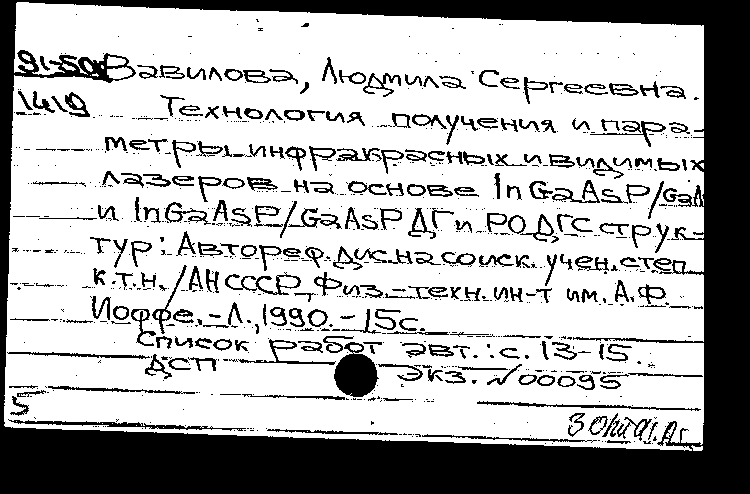 Вавилова, Людмила Сергеевна.
1419 Технология получения и пара-
метры инфракрасных и видимых
лазеров на основе InGaAsP/GaA
и InGaAsP/GaAsP ДГ и РО ДГС струк-
тур: Автореф. дис. на соиск. учен. степ
к.т.н. /АН СССР, Физ.-техн. ин-т им. А.Ф.
Иоффе. -Л., 1990. -15с.
Список работ авт.: с. 13-15.
ДСП Экз. №00095
5